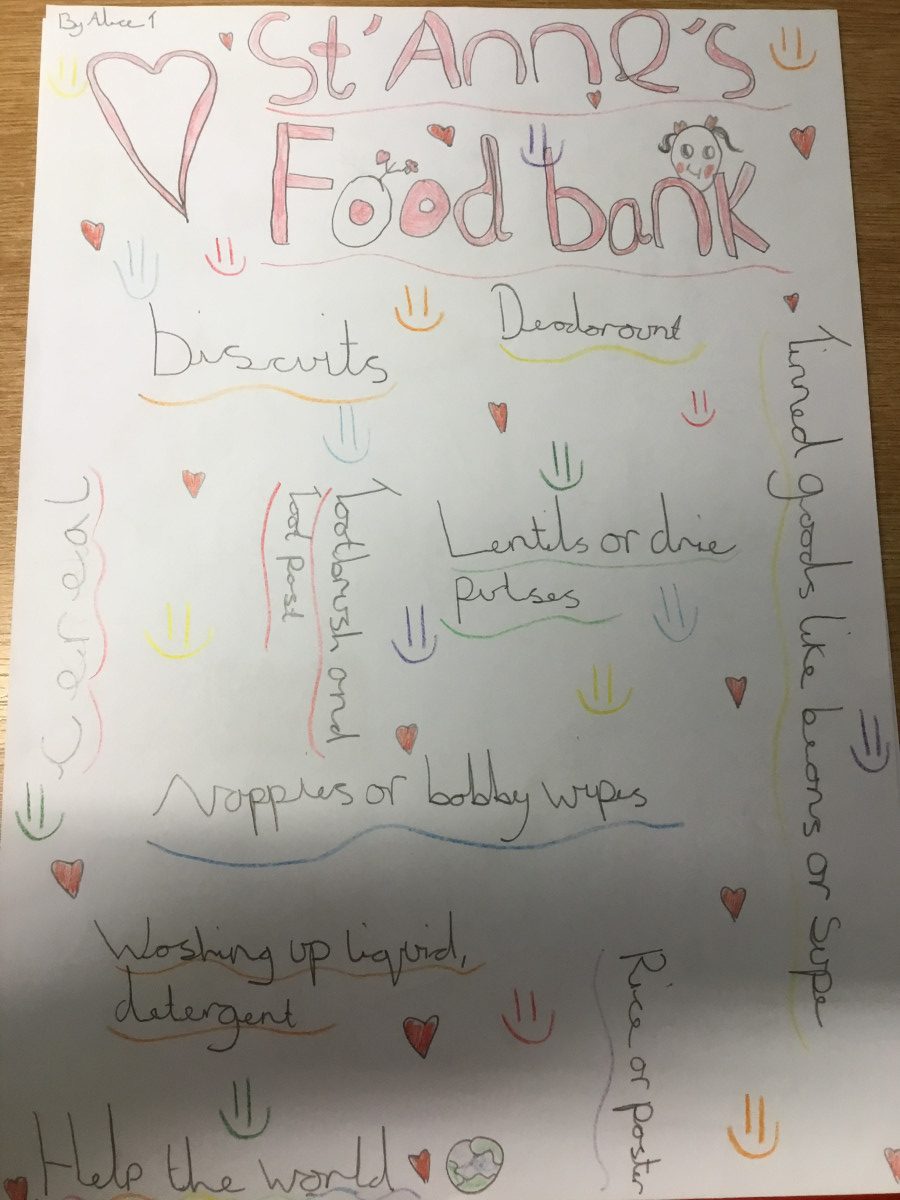 By Alice T
St'Anne's
Food bank
biscuits
Deodorount
Tinned goods like beons or supe
Cereal
Tootbrush and
toot past
Lentils or drie
pulses
Nappies or bobby wipes
Woshing up liquid,
detergent
Rice or paster
Help the world